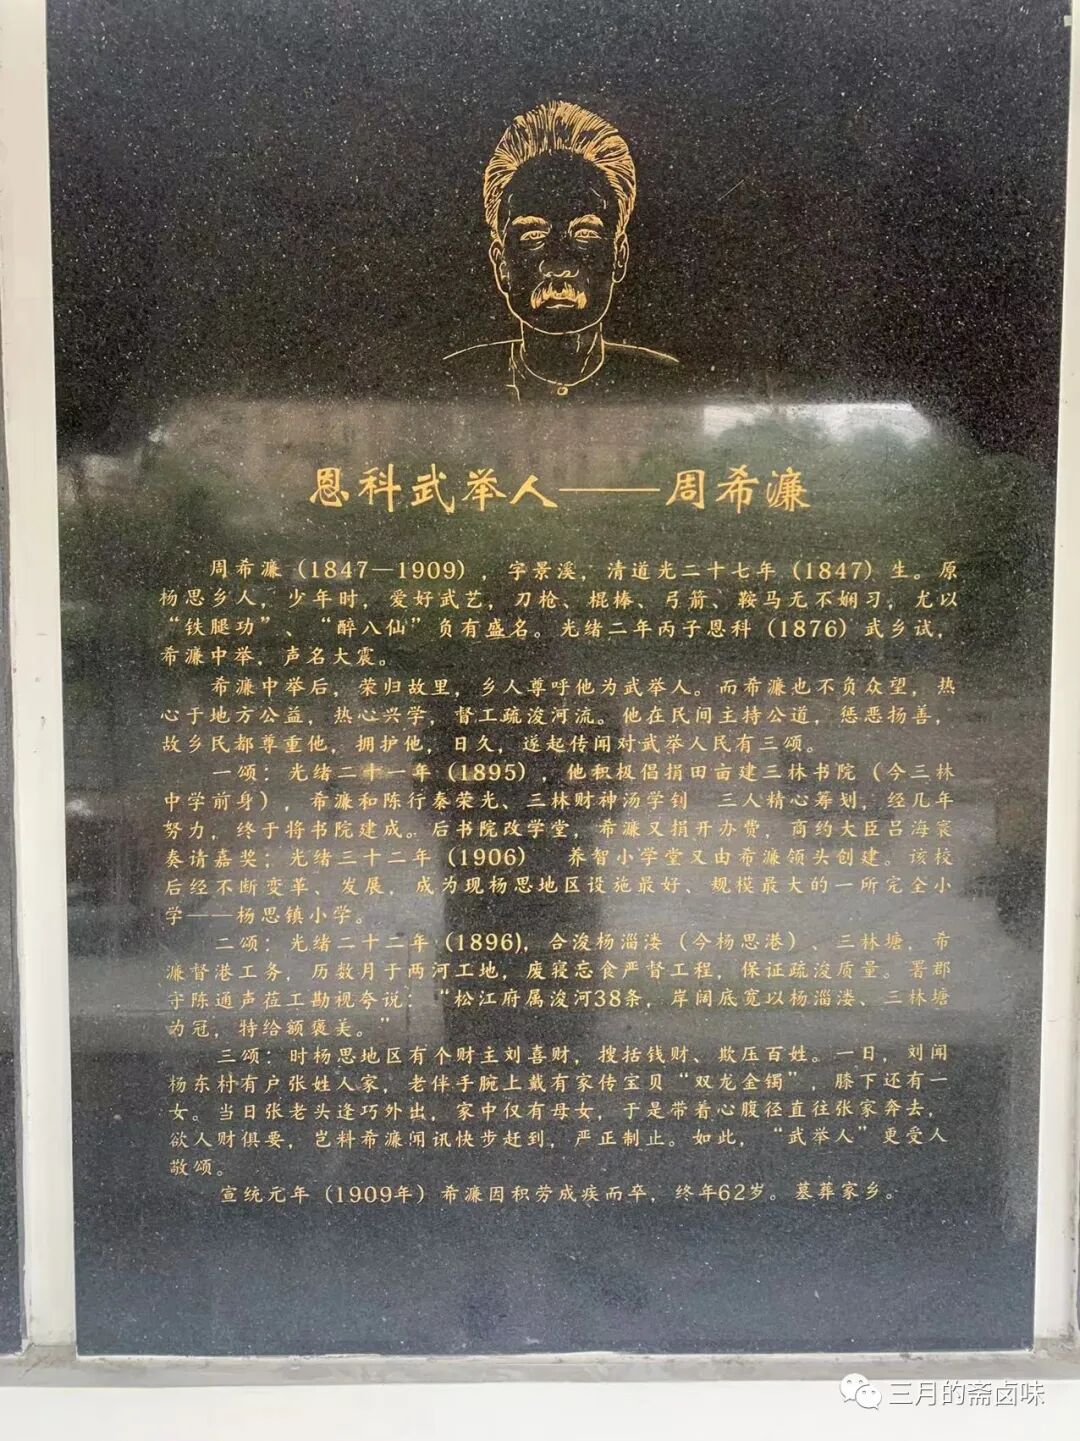 恩科武举人——周希濂
周希濂（1847—1909），字景溪，清道光二十七年（1847）生。原
杨思乡人，少年时，爱好武艺，刀枪、棍棒、弓箭、鞍马无不娴习，尤以
“铁腿功”、“醉八仙”负有盛名。光绪二年丙子恩科（1876）武乡试，
希濂中举，声名大震。
希濂中举后，荣归故里，乡人尊呼他为武举人。而希濂也不负众望，热
心于地方公益，热心兴学，督工疏浚河流。他在民间主持公道，惩恶扬善，
故乡民都尊重他，拥护他，日久，遂起传闻对武举人民有三颂。
一颂：光绪二十一年（1895），他积极倡捐田亩建三林书院（今三林
中学前身），希濂和陈行秦荣光、三林财神汤学钊 三人精心筹划，经几年
努力，终于将书院建成。后书院改学堂，希濂又捐开办费，商约大臣吕海寰
奏请嘉奖；光绪三十二年（1906） 养智小学堂又由希濂领头创建。该校
后经不断变革、发展，成为现杨思地区设施最好、规模最大的一所完全小
学——杨思镇小学。
二颂：光绪二十二年（1896），合浚杨淄溇（今杨思港）、三林塘，希
濂督港工务，历数月于两河工地，废寝忘食严督工程，保证疏浚质量。署郡
守陈通声莅工勘视夸说：“松江府属浚河38条，岸阔底宽以杨淄溇、三林塘
为冠，特给额褒美。”
三颂：时杨思地区有个财主刘喜财，搜括钱财、欺压百姓。一日，刘闻
杨东村有户张姓人家，老伴手腕上戴有家传宝贝“双龙金镯”，膝下还有一
女。当日张老头逢巧外出，家中仅有母女，于是带着心腹径直往张家奔去，
欲人财俱要，岂料希濂闻讯快步赶到，严正制止。如此，“武举人”更受人
敬颂。
宣统元年（1909年）希濂因积劳成疾而卒，终年62岁。墓葬家乡。
三月的斋卤味